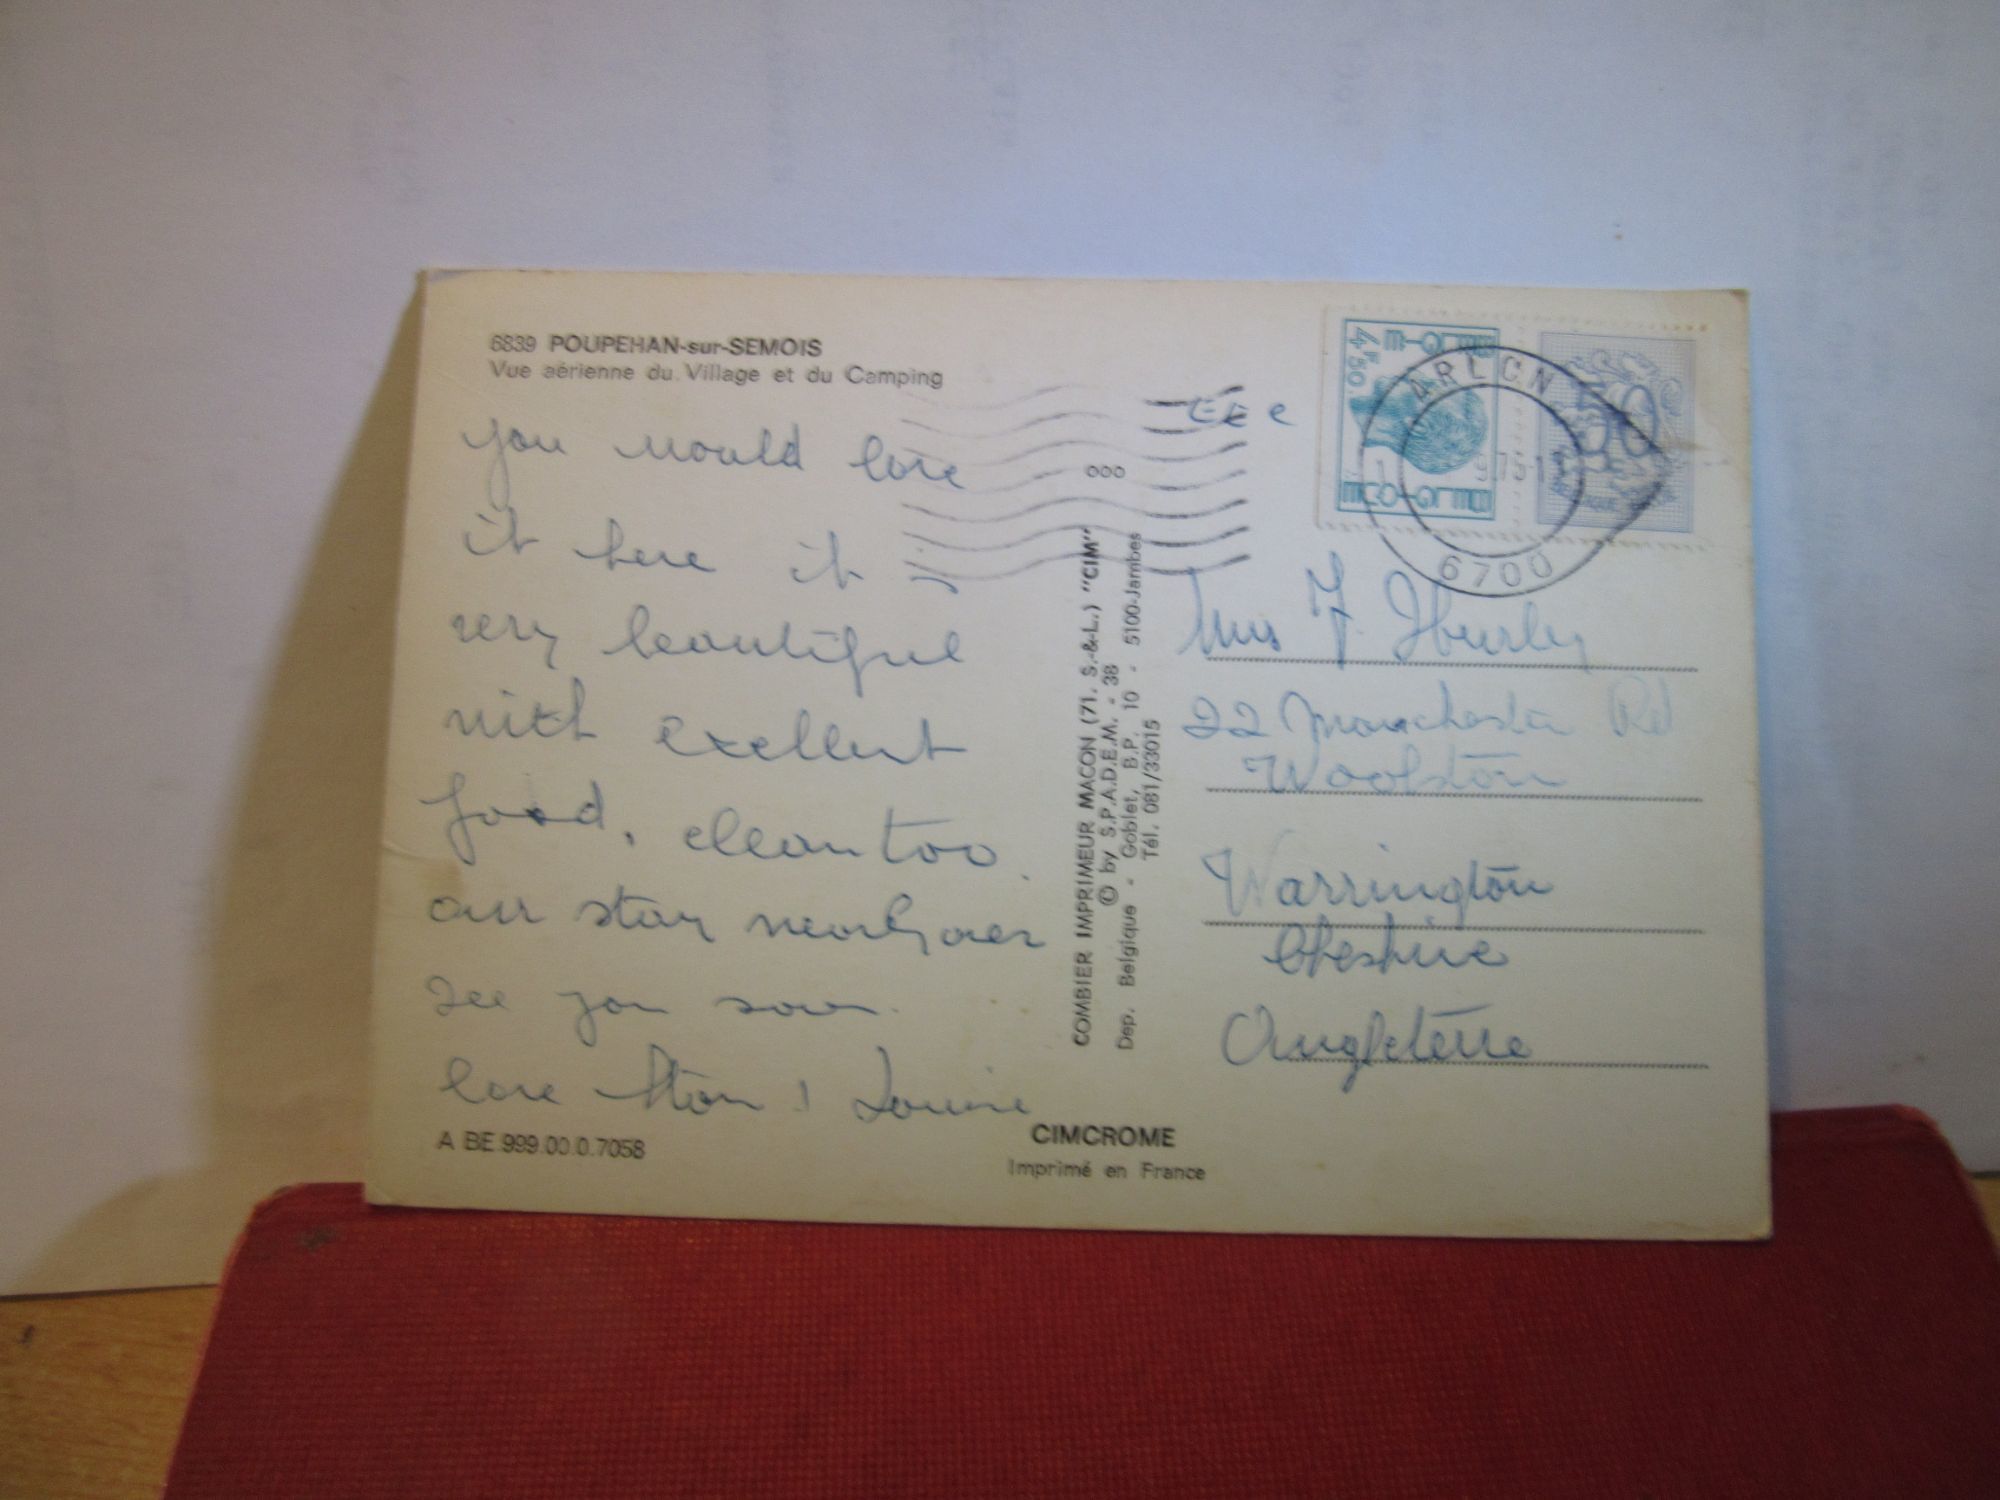 6839 POUPEHAN-sur-SEMOIS
Vue aérienne du Village et du Camping
you would love
it here it is
very beautiful
with excellent
food, clean too.
our stay nearly over
see you soon.
love Stan & Louise
A BE 999.00.0.7058
ooo
COMBIER IMPRIMEUR MACON (71. S.-&-L.) "CIM"
© by S.P.A.D.E.M. - 38
Dep. Belgique - Goblet, B.P. 10 - 5100-Jambes
Tél. 081/33015
CIMCROME
Imprimé en France
4F50
BELGIQUE
50
ARLON
6700
Mrs F.
22 Manchester Rd
Woolston
Warrington
Cheshire
Angleterre